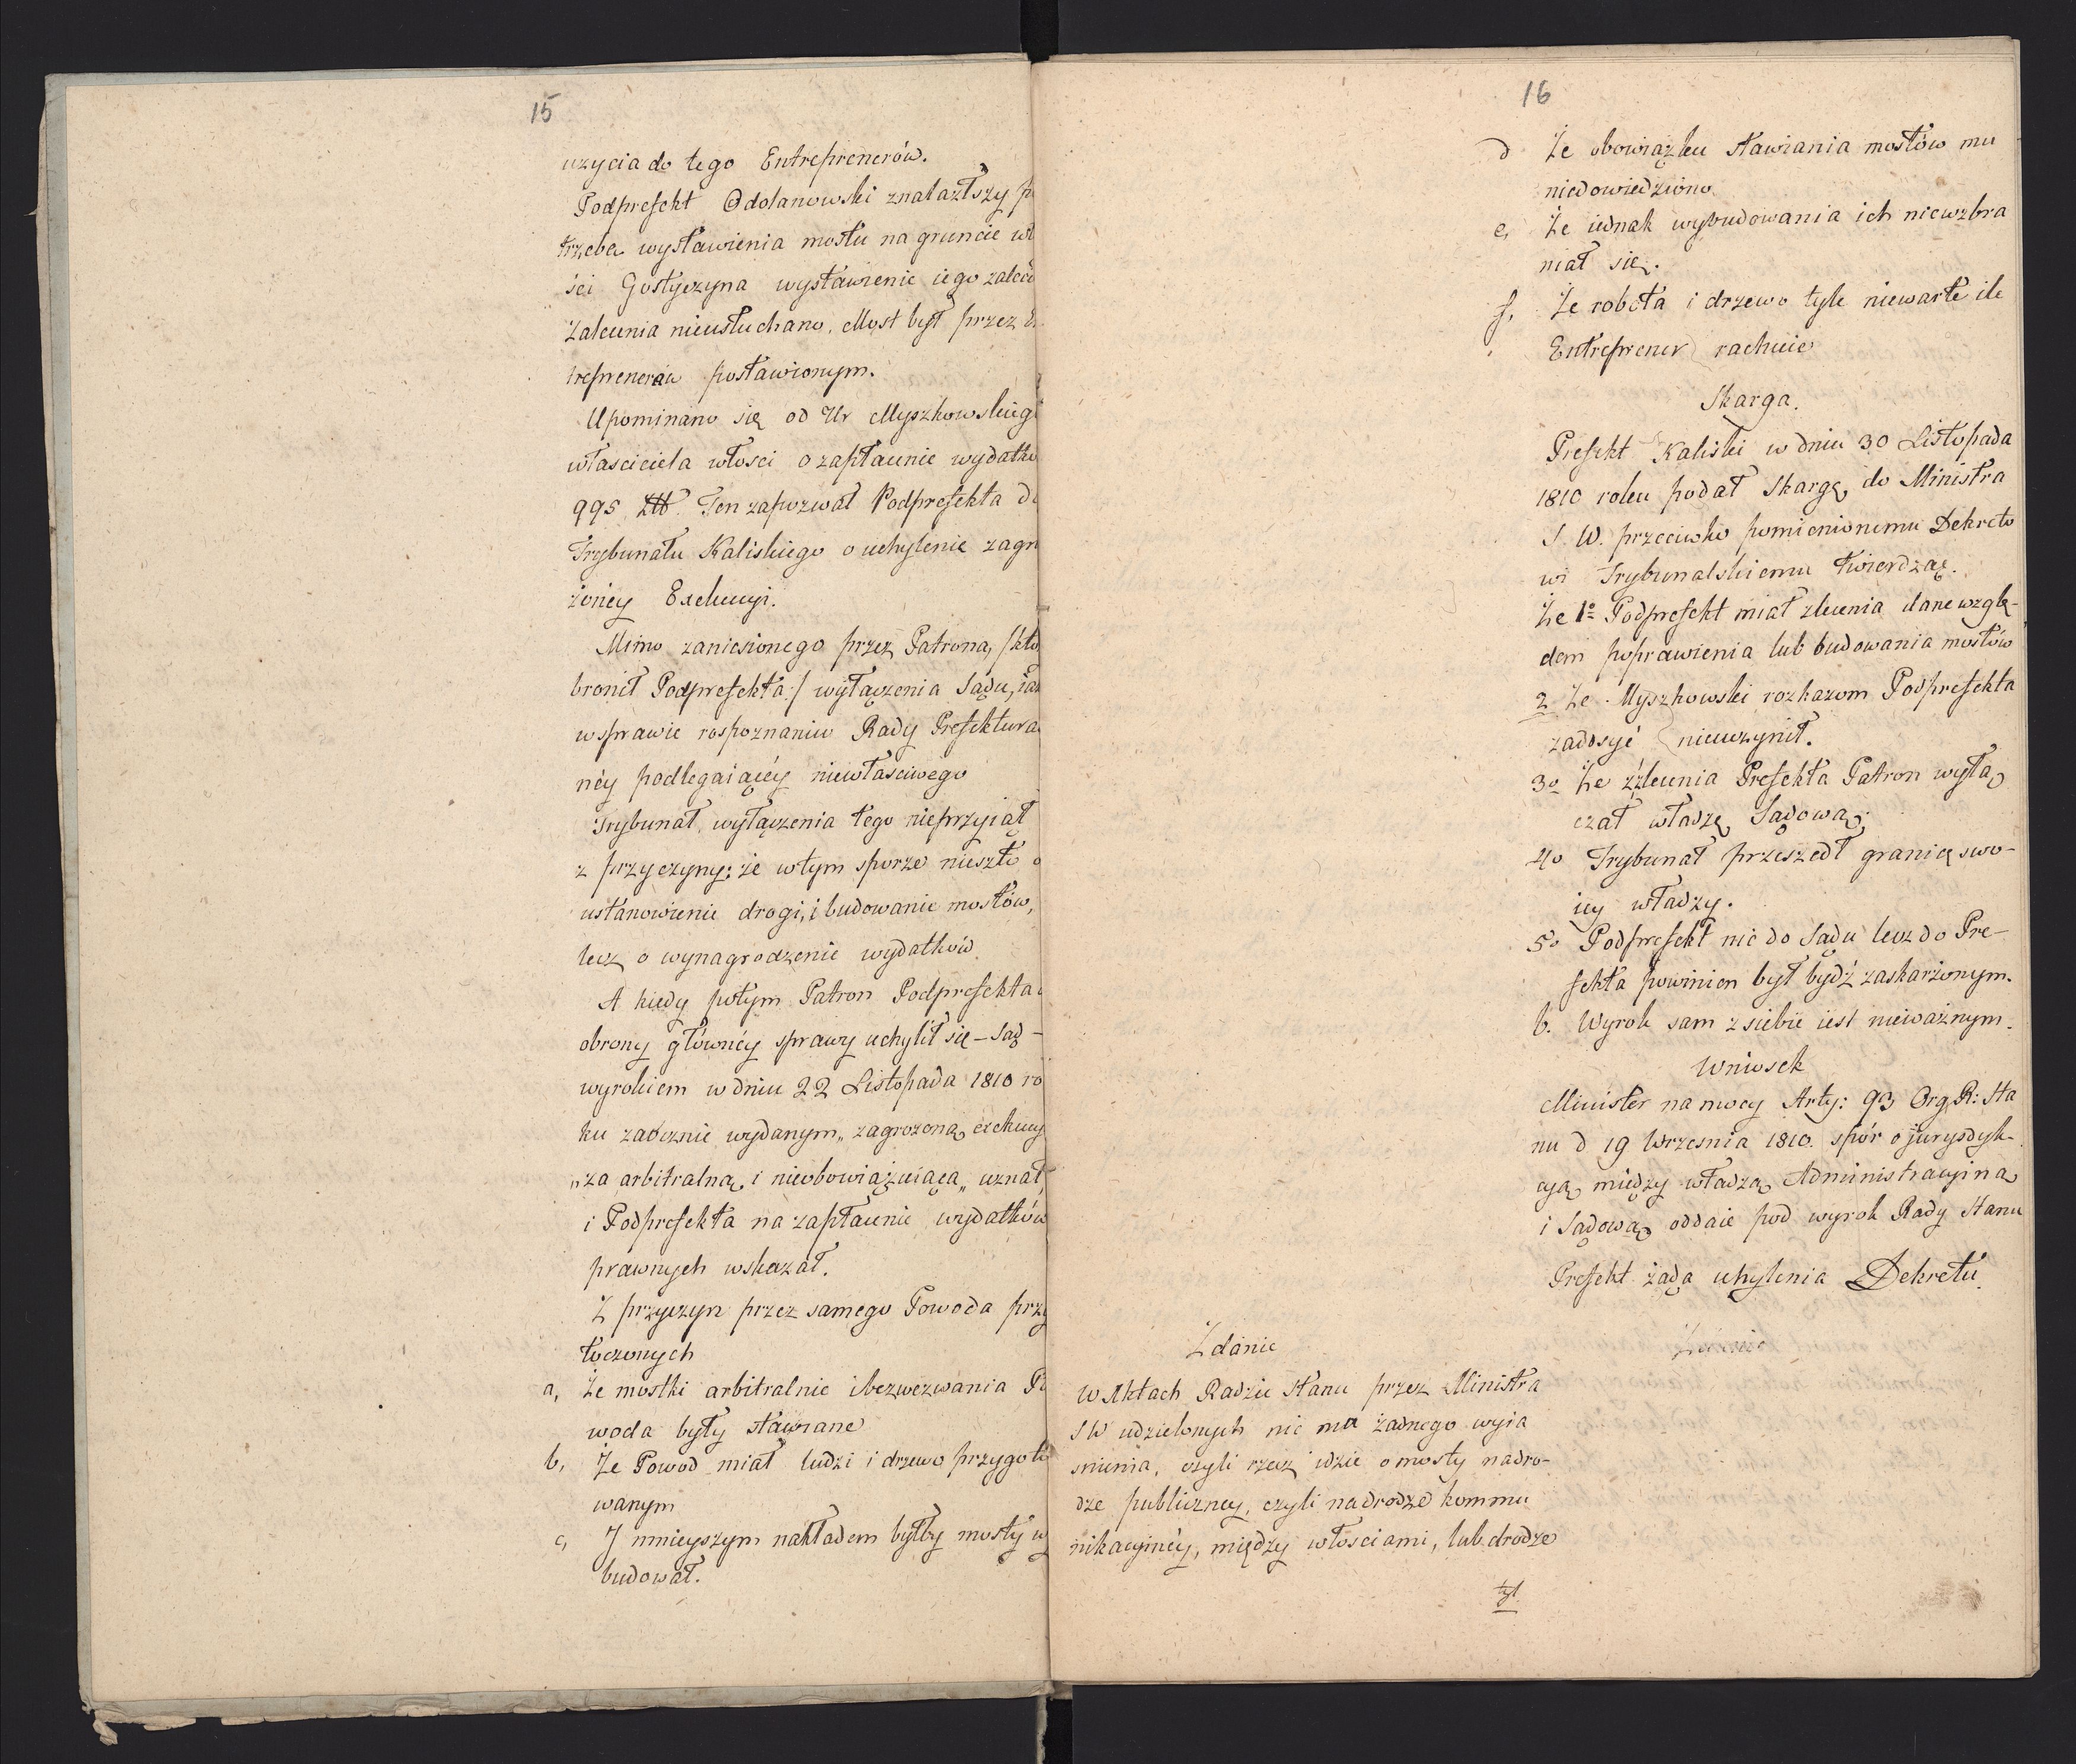 15
uzycia do tego Entreprenerów.
Podprefekt Odolanowski znalazłszy po
trzebę wystawienia mostu na gruncie wł
ści Gostyczyna wystawienie iego zalecił
Zalecenia nieusłuchano. Most był przez En
treprenerów postawionym.
Upominano się od Ur Myszkowskiego
własciciela włosci o zapłacenie wydatku
995 Złł. Ten zapozwał Podprefekta do
Trybunału Kaliskiego o uchylenie zagro
żonéy Exekucyi.
Mimo zaniesionego przez Patrona, /: któ
bronił Podprefekta :/ wyłączenia Sądu, iak
w sprawie rospoznaniu Rady Prefektural
néy podlegaiącéy niewłasciwego
Trybunał wyłączenia tego nieprzyiął
z przyczyny: że w tym sporze nieszło o
ustanowienie drogi, i budowanie mostów,
lecz o wynagrodzenie wydatków.
A kiedy potym Patron Podprefekta o
obrony głównéy sprawy uchylił się – Sąd –
wyrokiem w dniu 22 Listopada 1810 ro
ku zaocznie wydanym „ zagrożoną exekucyą
„ za arbitralną i nieobowiązuiącą „ uznał
i Podprefekta na zapłacenie wydatków
prawnych wskazał.
Z przyczyn przez samego Powoda przy
toczonych
a, Że mostki arbitralnie i bez wezwania Po
woda były stawiane
b, Że Powod miał ludzi i drzewo przygoto
wanym
c, I mnieyszym nakładem byłby mosty wy
budował.
16
d Że obowiązku stawiania mostów mu
niedowiedziono
e, Że iednak wybudowania ich niewzbra
niał się.
f, Że robota i drzewo tyle niewarte ile
Entreprener rachuie
Skarga.
Prefekt Kaliski w dniu 30 Listopada
1810 roku podał Skargę do Ministra
S W. przeciwko pomienionemu Dekreto
wi Trybunalskiemu twierdząc.
Że 1º Podprefekt miał zlecenia dane wzglę-
dem poprawienia lub budowania mostów
2 Że Myszkowski rozkazom Podprefekta
zadosyć nieuczynił.
3º Że z zlecenia Prefekta Patron wyłą
czał władzę Sądową;
4º Trybunał przeszedł granicę swo-
iey władzy.
5º Podprefekt nie do Sądu lecz do Pre-
fekta powinien był bydź zaskarżonym.
6. Wyrok sam z siebie iest nieważnym.
Wniosek
Minister na mocy Arty: 93 Org. R: Sta
nu d 19 Wrzesnia 1810. spór o jurysdyk-
cyą między władzą Administracyiną
i Sądową oddaie pod wyrok Rady Stanu
Prefekt żąda uchylenia Dekretu.
Zdanie
Zdanie
W Aktach Radzie Stanu przez Ministra
S W udzielonych nie ma żadnego wyia
snienia, czyli rzecz idzie o mosty na dro-
dze publiczney, czyli na drodze kommu
nikacyinéy, między włosciami, lub drodze
tyl.